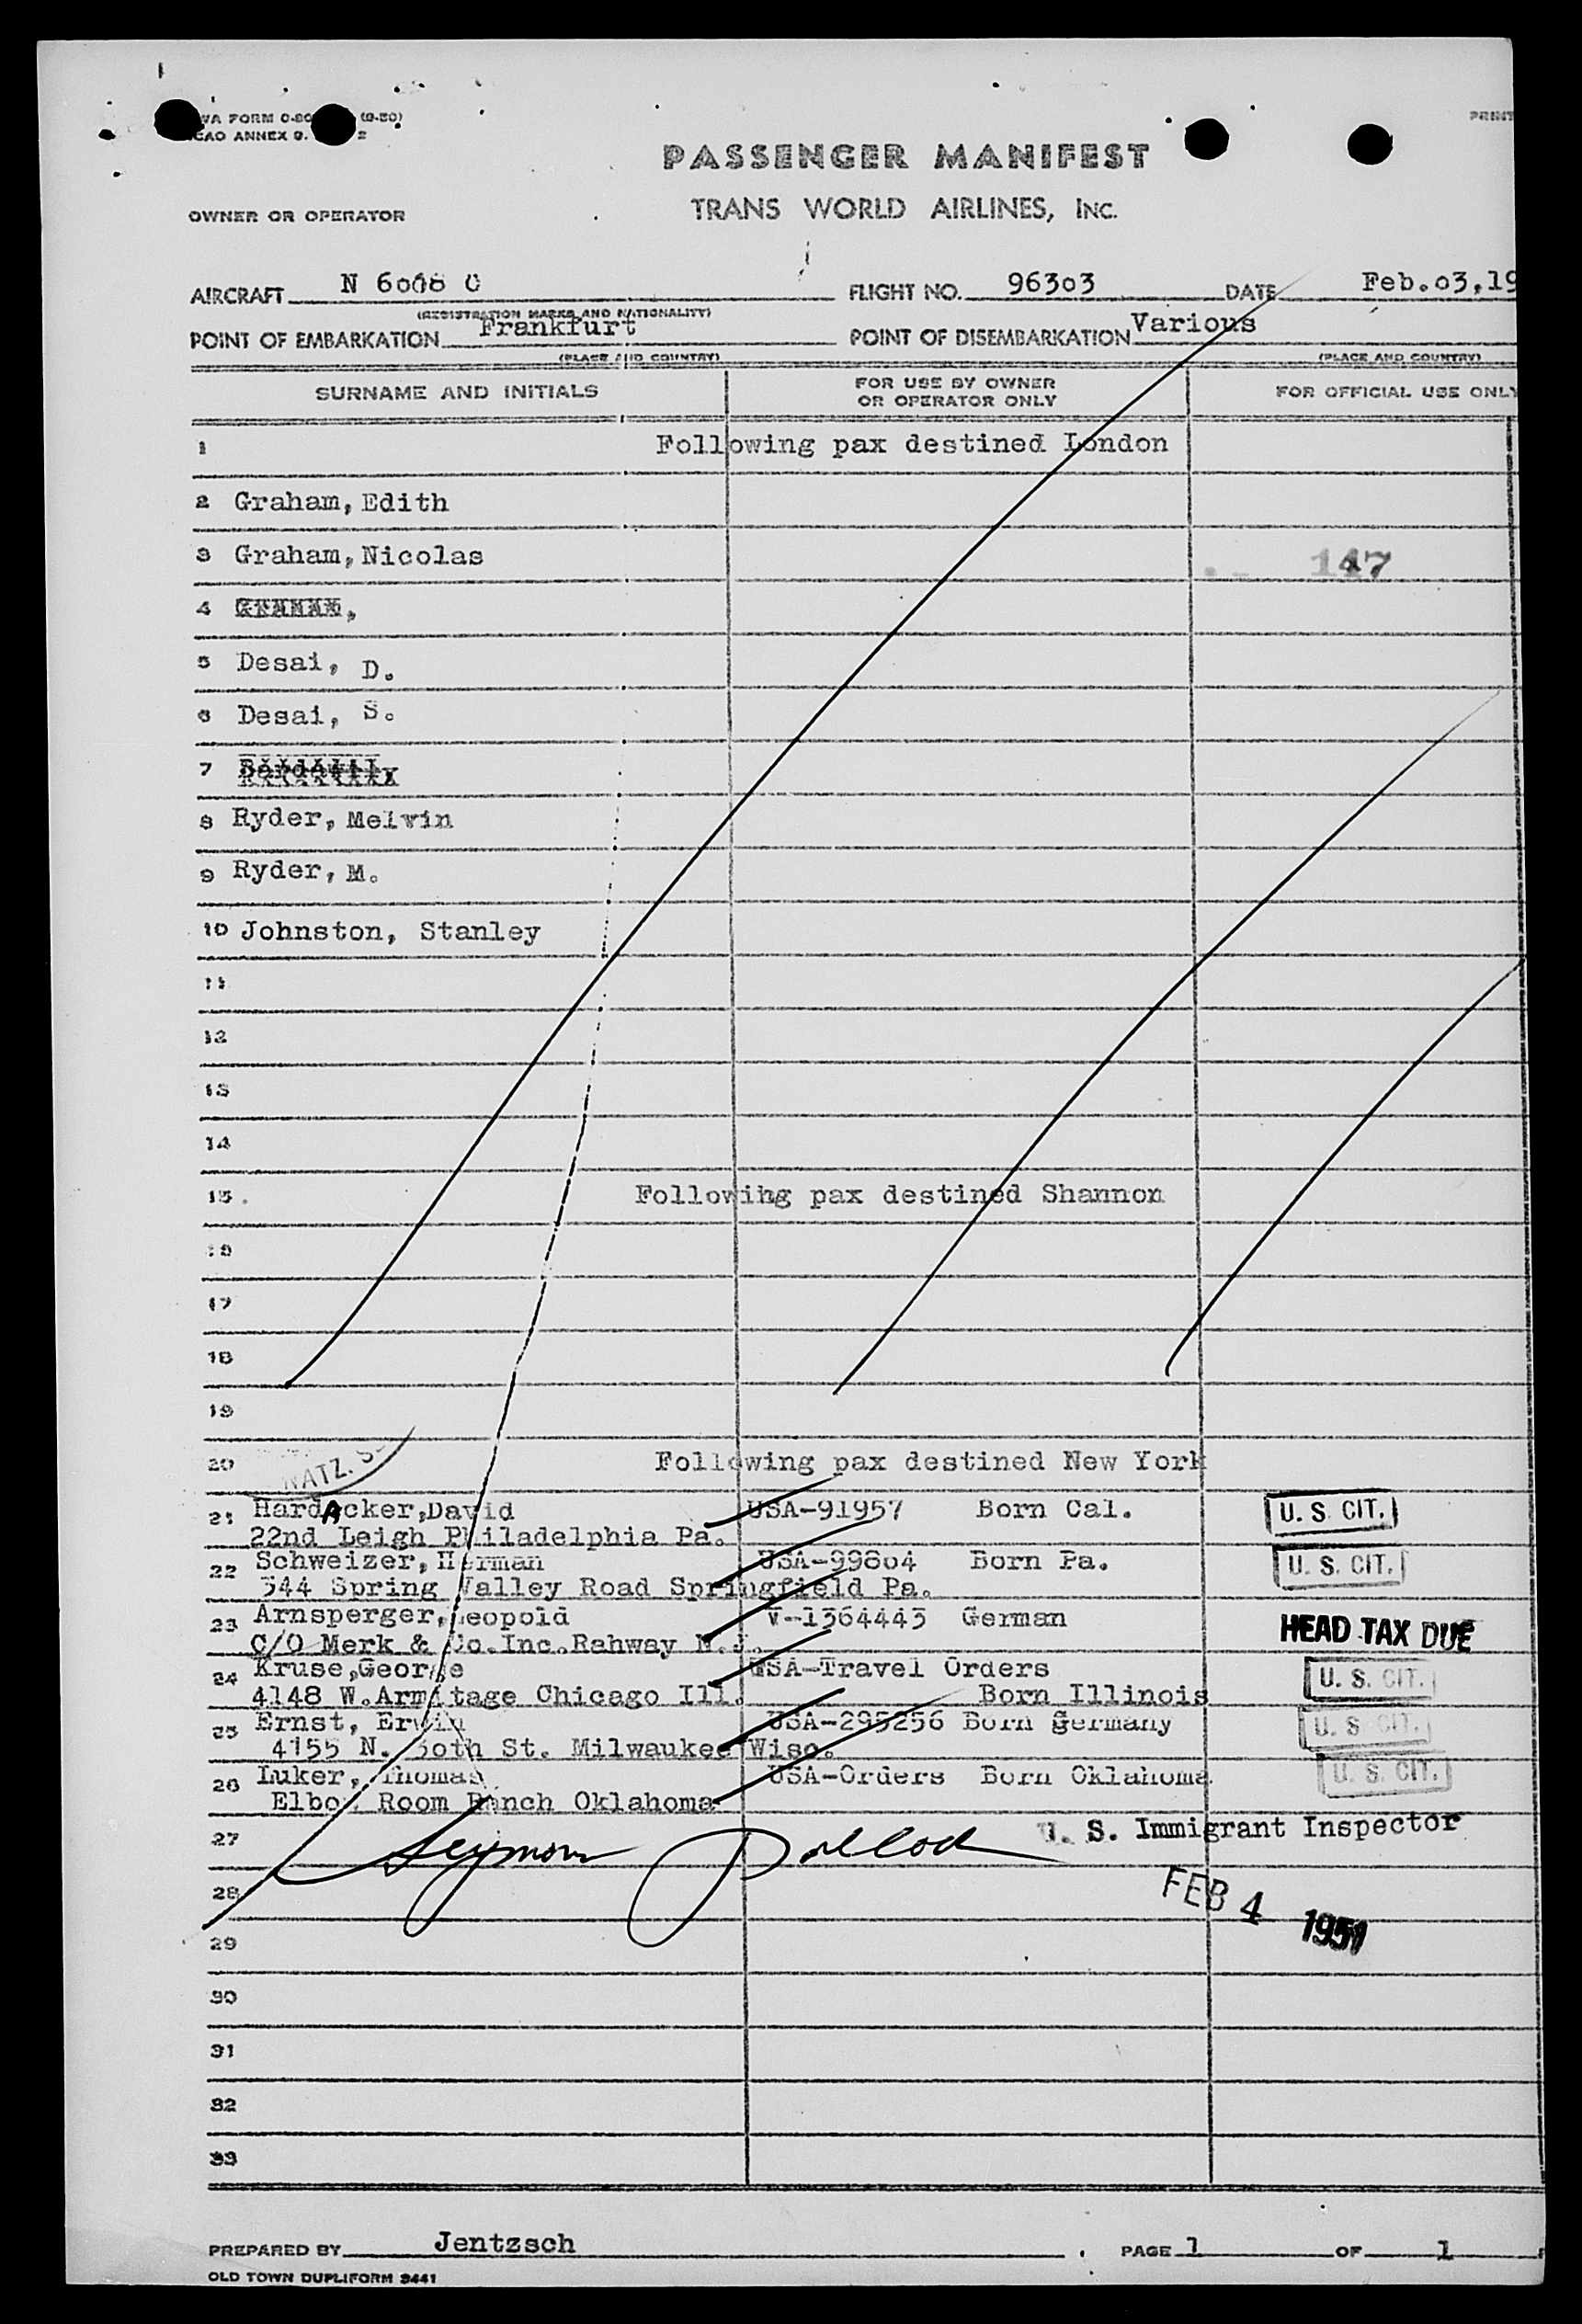 WA FORM
(9-50)
PRINT
CAO ANNEX 9.
2
PASSENGER MANIFEST
OWNER OR OPERATOR
TRANS WORLD AIRLINES, INC.
AIRCRAFT N FLIGHT NO. 96303 DATE Feb.03,19
(REGISTRATION MARKS AND NATIONALITY)
POINT OF EMBARKATION Frankfurt POINT OF DISEMBARKATION Various
(PLACE AND COUNTRY) (PLACE AND COUNTRY)
SURNAME AND INITIALS FOR USE BY OWNER OR OPERATOR ONLY FOR OFFICIAL USE ONLY
1 Following pax destined London
2 Graham, Edith
3 Graham, Nicolas 147
4
5 Desai, D.
6 Desai, S.
7
8 Ryder, Melvin
9 Ryder, M.
10 Johnston, Stanley
11
12
13
14
15 Following pax destined Shannon
16
17
18
19
20 NATZ. Following pax destined New York
21 HardAcker,David USA-91957 Born Cal. U. S. CIT.
22nd Leigh Philadelphia Pa.
22 Schweizer, Herman USA-99804 Born Pa. U. S. CIT.
544 Spring Valley Road Springfield Pa.
23 Arnsperger, Leopold V-1364443 German HEAD TAX DUE
C/O Merk & Co.Inc.Rahway N.J.
24 Kruse,George USA-Travel Orders U. S. CIT.
4148 W.Armitage Chicago Ill. Born Illinois
25 Ernst, Erwin USA-295256 Born Germany U. S. CIT.
4155 N. St. Milwaukee Wisc.
26 Luker, Thomas USA-Orders Born Oklahoma U. S. CIT.
Elbow Room Ranch Oklahoma
27 Seymour Pollock U. S. Immigrant Inspector
28 FEB 4 1951
29
30
31
32
33
PREPARED BY Jentzsch PAGE 1 OF 1
OLD TOWN DUPLIFORM 9441